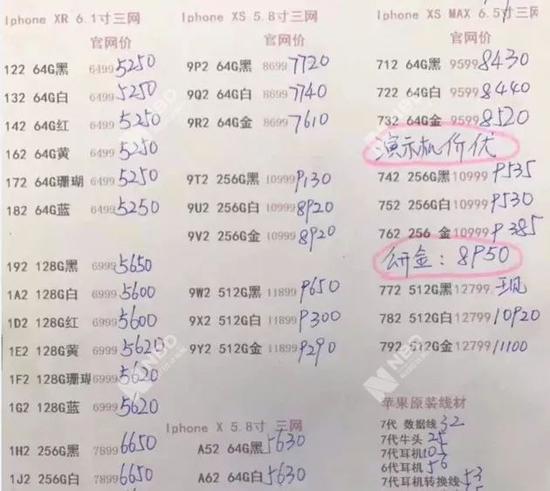 Iphone XR 6.1寸三网
官网价
122 64G黑 6499 5250
132 64G白 6499 5250
142 64G红 6499 5250
162 64G黄 6499 5250
172 64G珊瑚 6499 5250
182 64G蓝 6499 5250
192 128G黑 6999 5650
1A2 128G白 6999 5600
1D2 128G红 6999 5600
1E2 128G黄 6999 5620
1F2 128G珊瑚 6999 5620
1G2 128G蓝 6999 5620
1H2 256G黑 7899 6650
1J2 256G白 7899 6650
Iphone XS 5.8寸三网
官网价
9P2 64G黑 8699 7720
9Q2 64G白 8699 7740
9R2 64G金 8699 7610
9T2 256G黑 10999 9130
9U2 256G白 10999 8920
9V2 256G金 10999 8920
9W2 512G黑 11899 9650
9X2 512G白 11899 9300
9Y2 512G金 11899 9290
Iphone X 5.8寸 三网
A52 64G黑 5630
A62 64G白 5630
Iphone XS MAX 6.5寸三网
官网价
712 64G黑 9599 8430
722 64G白 9599 8440
732 64G金 9599 8520
演示机价优
742 256G黑 10999 9535
752 256G白 10999 9530
762 256 金 10999 9385
公开金：8950
772 512G黑 12799
782 512G白 12799 10920
792 512G金 12799 11100
苹果原装线材
7代 数据线 32
7代牛头 25
7代耳机 105
6代耳机 56
7代耳机转换线
NBD